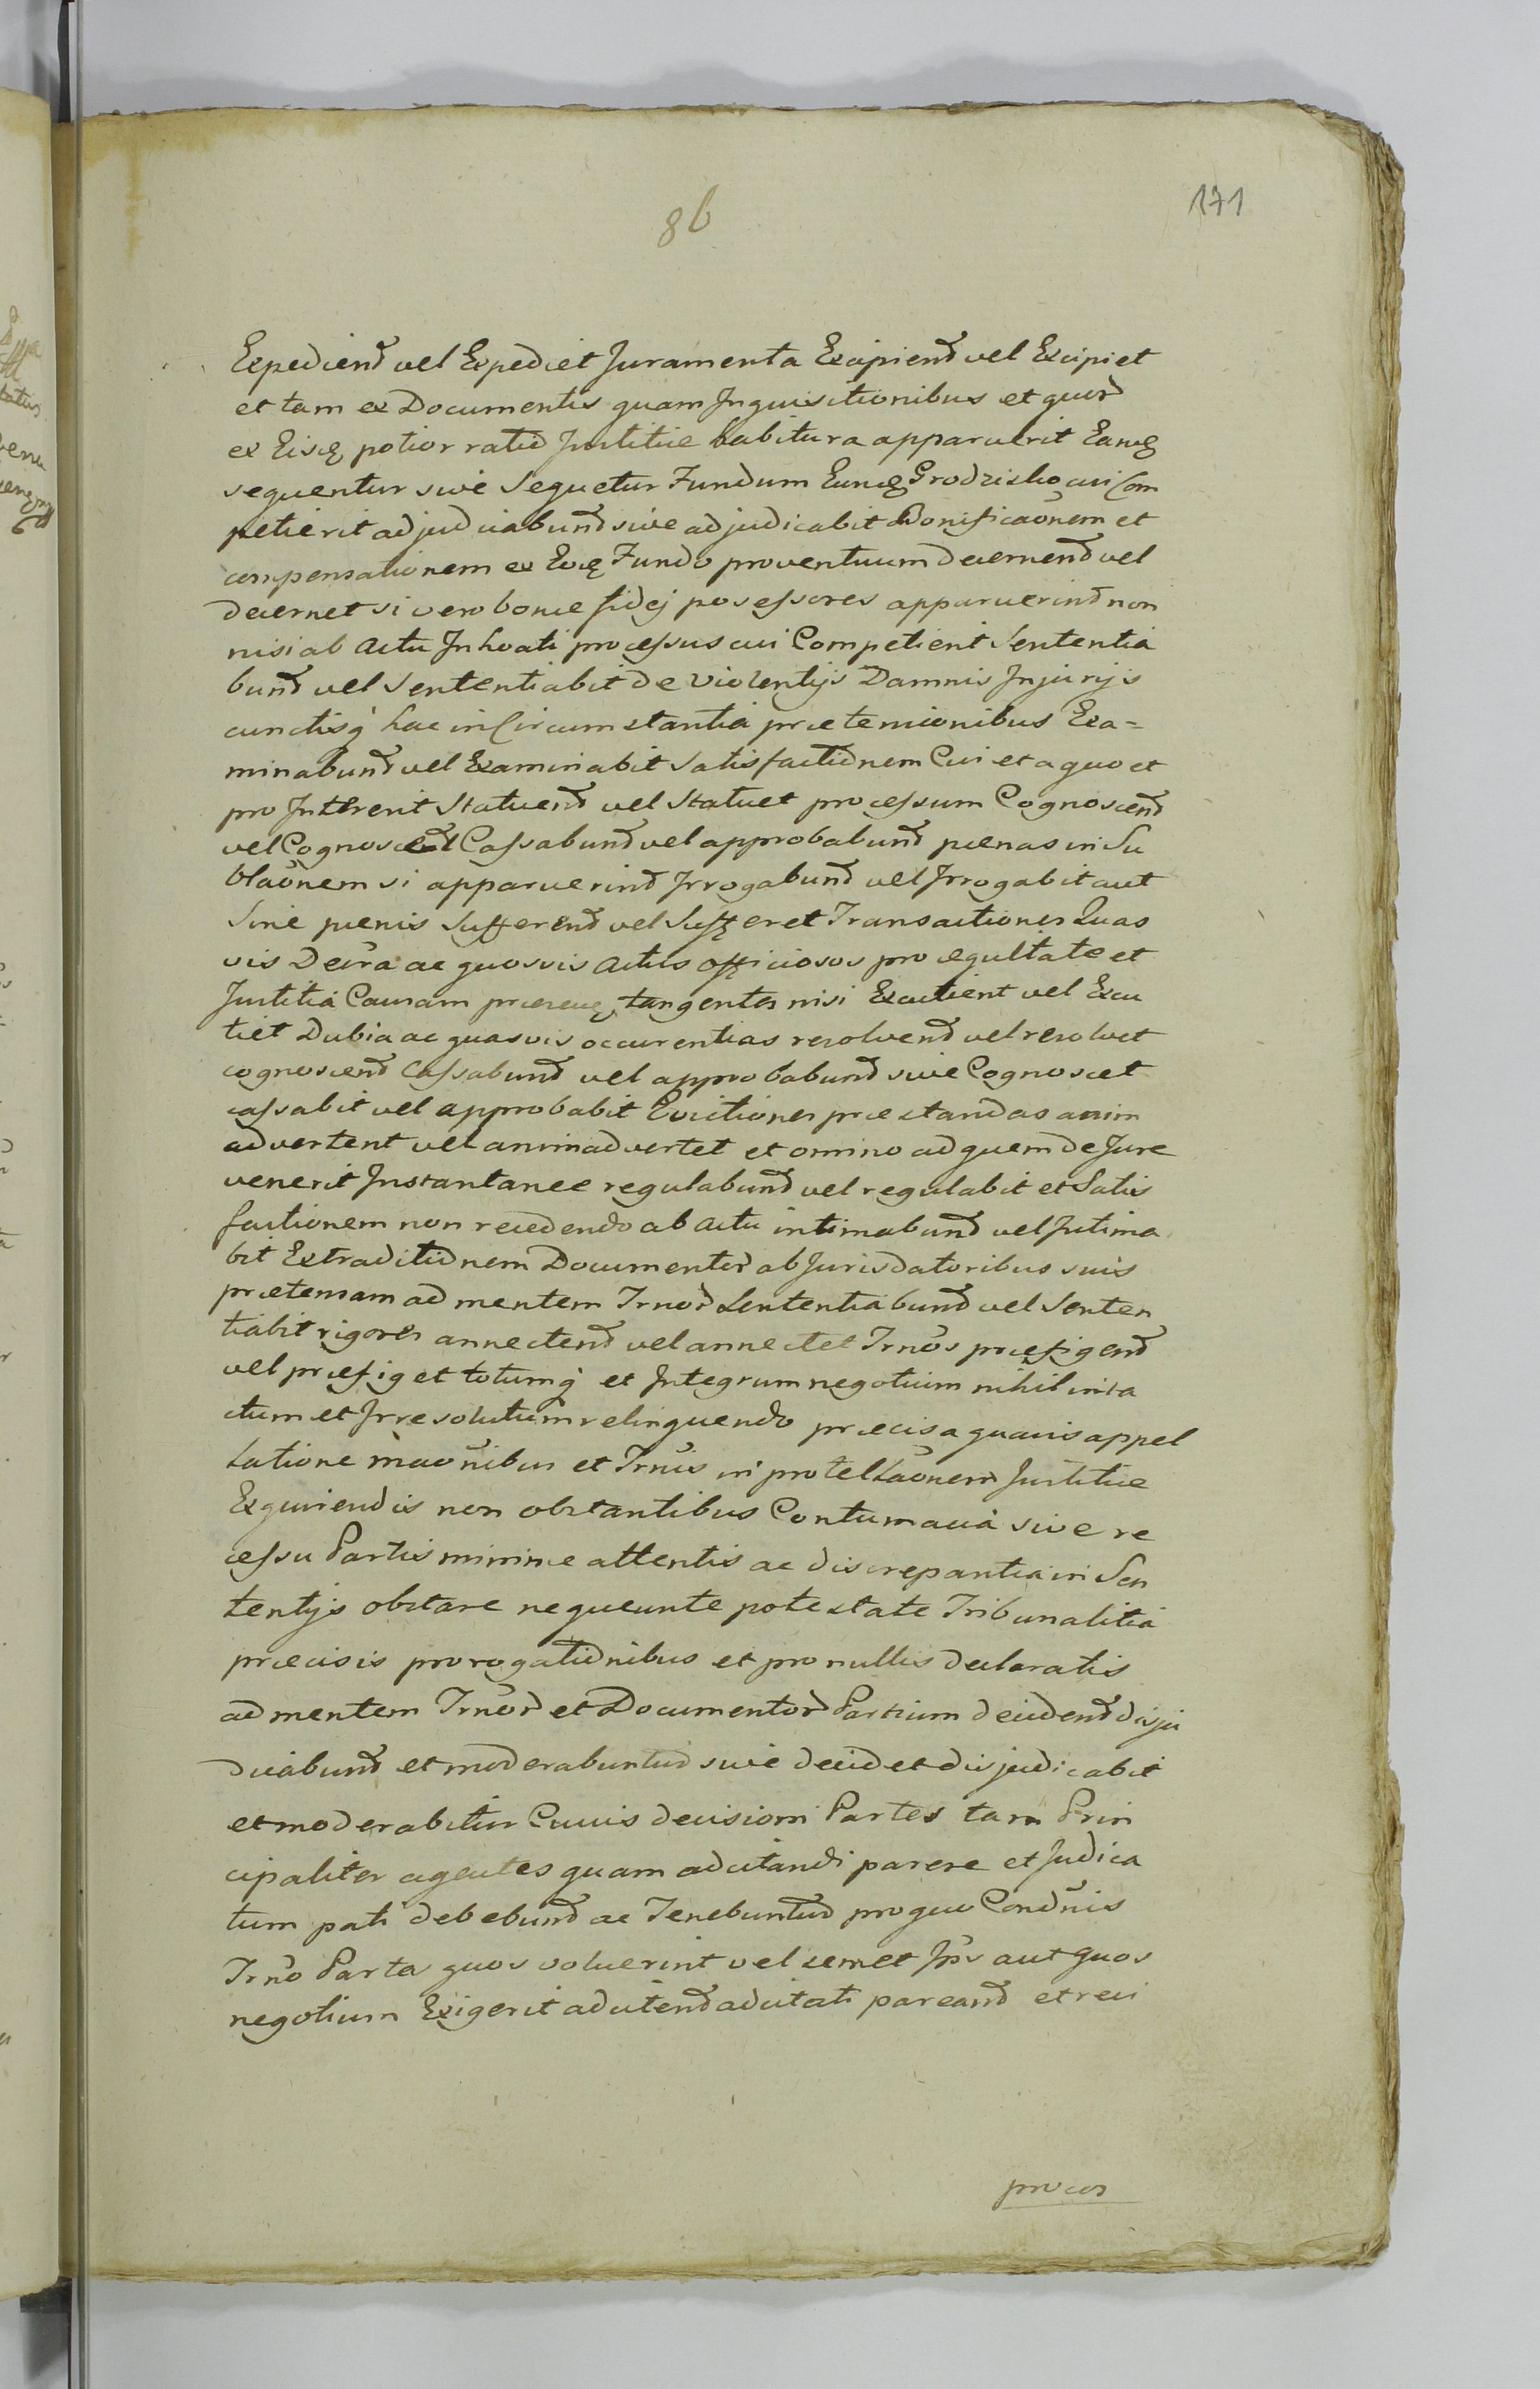 86
171
Expediend vel Expediet Juramenta Excipiend vel Excipiet
et tam ex Documentis quam Inquisitionibus et quid
ex Eisq potior ratio Justitiæ habitura apparuerit Eamq
sequentur sive sequetur Fundum Eumq Grodzisko cui Com
petierit adjudicabund sive adjudicabit Bonificaōnem et
compensationem ex Eoq Fundo proventuum decernend vel
decernet si vero bonæ fidej possessores apparuerind non
nisi ab actu Inhoati processus cui Competient Sententia
bund vel Sententiabit de violentijs Damnis Injurijs
cunctisq hac in Circumstantia prætensionibus Exa=
minabund vel Examinabit satisfactionem Cui et a quo et
pro Intererit Statuend vel Statuet processum Cognoscend
vel Cassabund vel approbabund pœnas in Su
blaōnem si apparuerind Irrogabund vel Irrogabit aut
Sine pœnis Sufferend vel Sufferet Transactiones Quas
vis Decra ac quosvis actus officiosos pro æquitate et
Justitia Causam præsenq tangentes nisi Excutient vel Excu
tiet Dubia ac quasvis occurentias resolvend vel resolvet
cognoscend Cassabund vel approbabund sive Cognoscet
cassabit vel approbabit Evictiones præstandas anim
advertent vel animadvertet et omnino ad quem de Jure
venerit Instantanee regulabund vel regulabit et Satis
factionem non recedendo ab actu intimabund vel Intima
bit Extraditionem Documentor ab Jurisdatoribus suis
prætensam ad mentem Trnor Sententiabund vel Senten
tiabit rigores annectend vel annectet Trnos præfigend
vel præfiget totumq et Integrum negotium nihil inta
ctum et Irresolutum relinquendo præcisa quavis appel
latione maōnibus et Trnis in protellaōnem Justitiæ
Exquirendis non obstantibus Contumacia sive re
cessu Partis minime attentis ac discrepantia in Sen
tentijs obstare nequeunte potestate Tribunalitia
præcisis prorogationibus et pro nullis declaratis
ad mentem Trnor et Documentor Partium decidend disju
dicabund et moderabuntur sive decidet disjudicabit
et moderabitur Cuius decisioni Partes tam Prin
cipaliter agentes quam adcitandi parere et Judica
tum pati debebund ac Tenebuntur pro quo Condnis
Trno Partes quos voluerint vel semet Ips aut quos
negotium Exigerit adcitend adcitati pareand et reci
proces